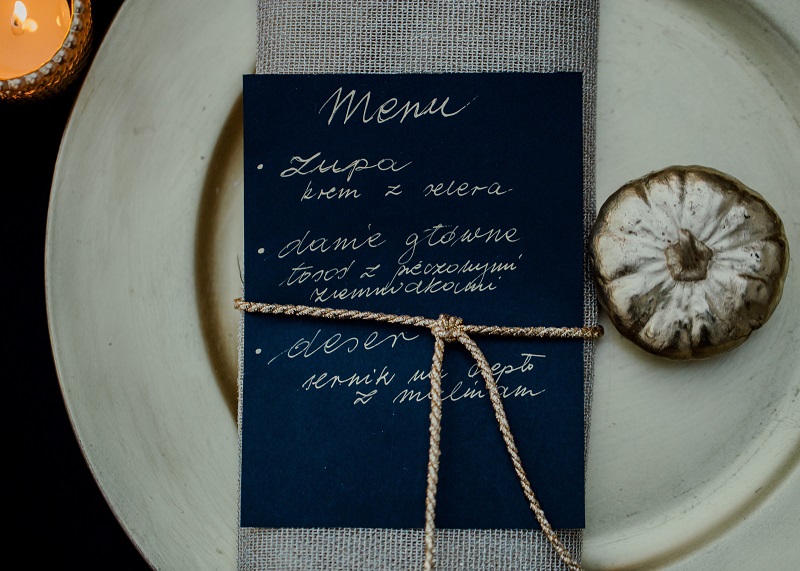 Menu
• Zupa
krem z selera
• danie główne
łosoś z pieczonymi
ziemniakami
• deser
sernik na ciepło
z malinam